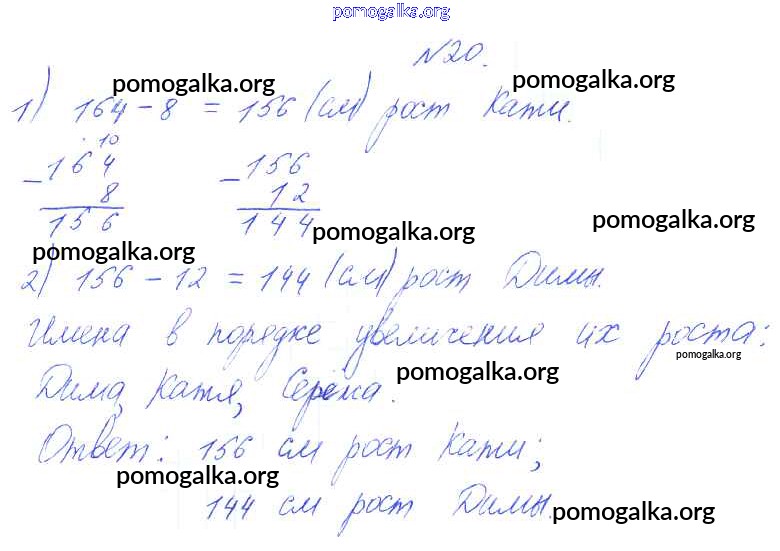 pomogalka.org
№20.
pomogalka.org pomogalka.org
1) 164 - 8 = 156 (см) рост Кати.
. 10
- 164 - 156
8 12
156 144
pomogalka.org pomogalka.org pomogalka.org
2) 156 - 12 = 144 (см) рост Димы.
Имена в порядке увеличения их роста:
pomogalka.org
pomogalka.org
Дима, Катя, Серёжа.
Ответ: 156 см рост Кати;
pomogalka.org
144 см рост Димы.
pomogalka.org